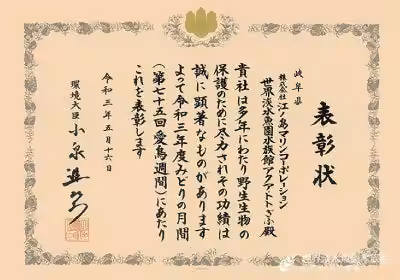 表彰状
岐阜県
株式会社江ノ島マリンコーポレーション
世界淡水魚園水族館アクア・トトぎふ殿
貴社は多年にわたり野生生物の
保護のために尽力されその功績は
誠に顕著なものがあります
よって令和三年度みどりの月間
(第七十五回愛鳥週間)にあたり
これを表彰します
令和三年五月十六日
環境大臣 小泉進次郎